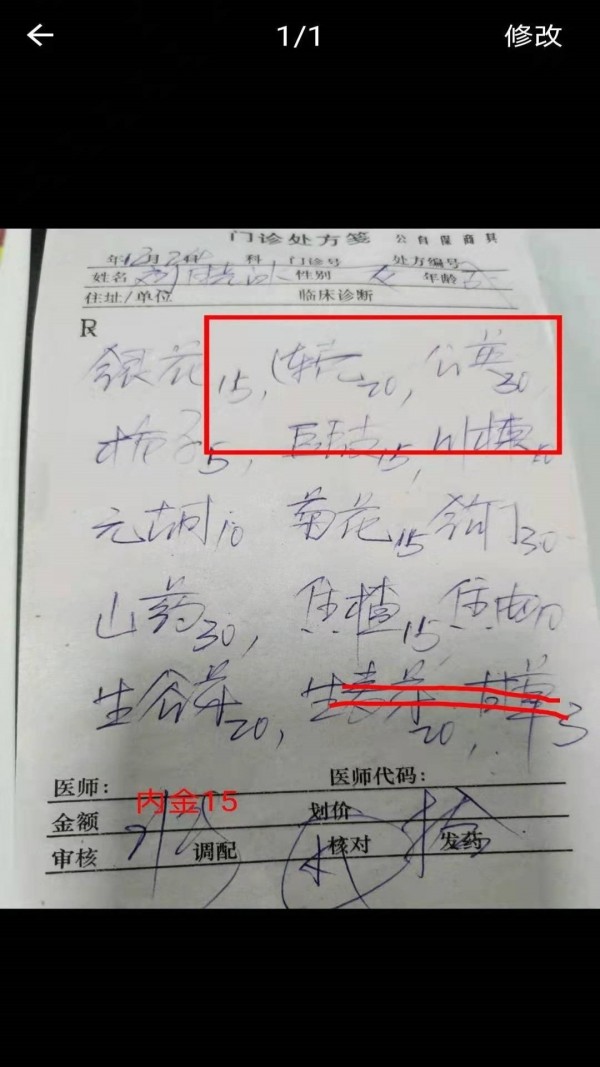 1/1 修改
门诊处方笺 公自煤商具
年12月2 科 门诊号 处方编号
姓名 性别 女 年龄
住址/单位 临床诊断
R
银花15, 连壳20, 公英30
栀子5, 豆豉15, 川楝10
元胡10 菊花15 钩丁30
山药30, 焦楂15 焦曲10
生谷芽20, 生麦芽20, 甘草3
医师: 医师代码:
内金15
金额 划价
审核 调配 核对 发药